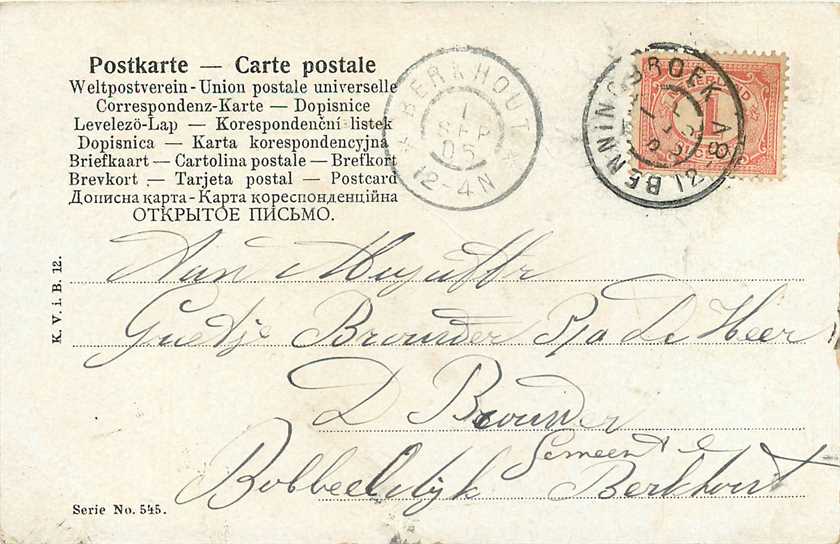 Postkarte — Carte postale
Weltpostverein - Union postale universelle
Correspondenz-Karte — Dopisnice
Levelezö-Lap — Korespondenční listek
Dopisnica — Karta korespondencyjna
Briefkaart — Cartolina postale — Brefkort
Brevkort — Tarjeta postal — Postcard
Дописна карта - Карта кореспонденційна
ОТКРЫТОЕ ПИСЬМО.
BERKHOUT
1
SEP
05
12-4N
BENNINGBROEK
1
K. V. i. B. 12.
Aan Mejuffr
Guetje Brouwer P/a De Heer
D Brouwer
Gemeente
Bobbeldijk Berkhout
Serie No. 545.